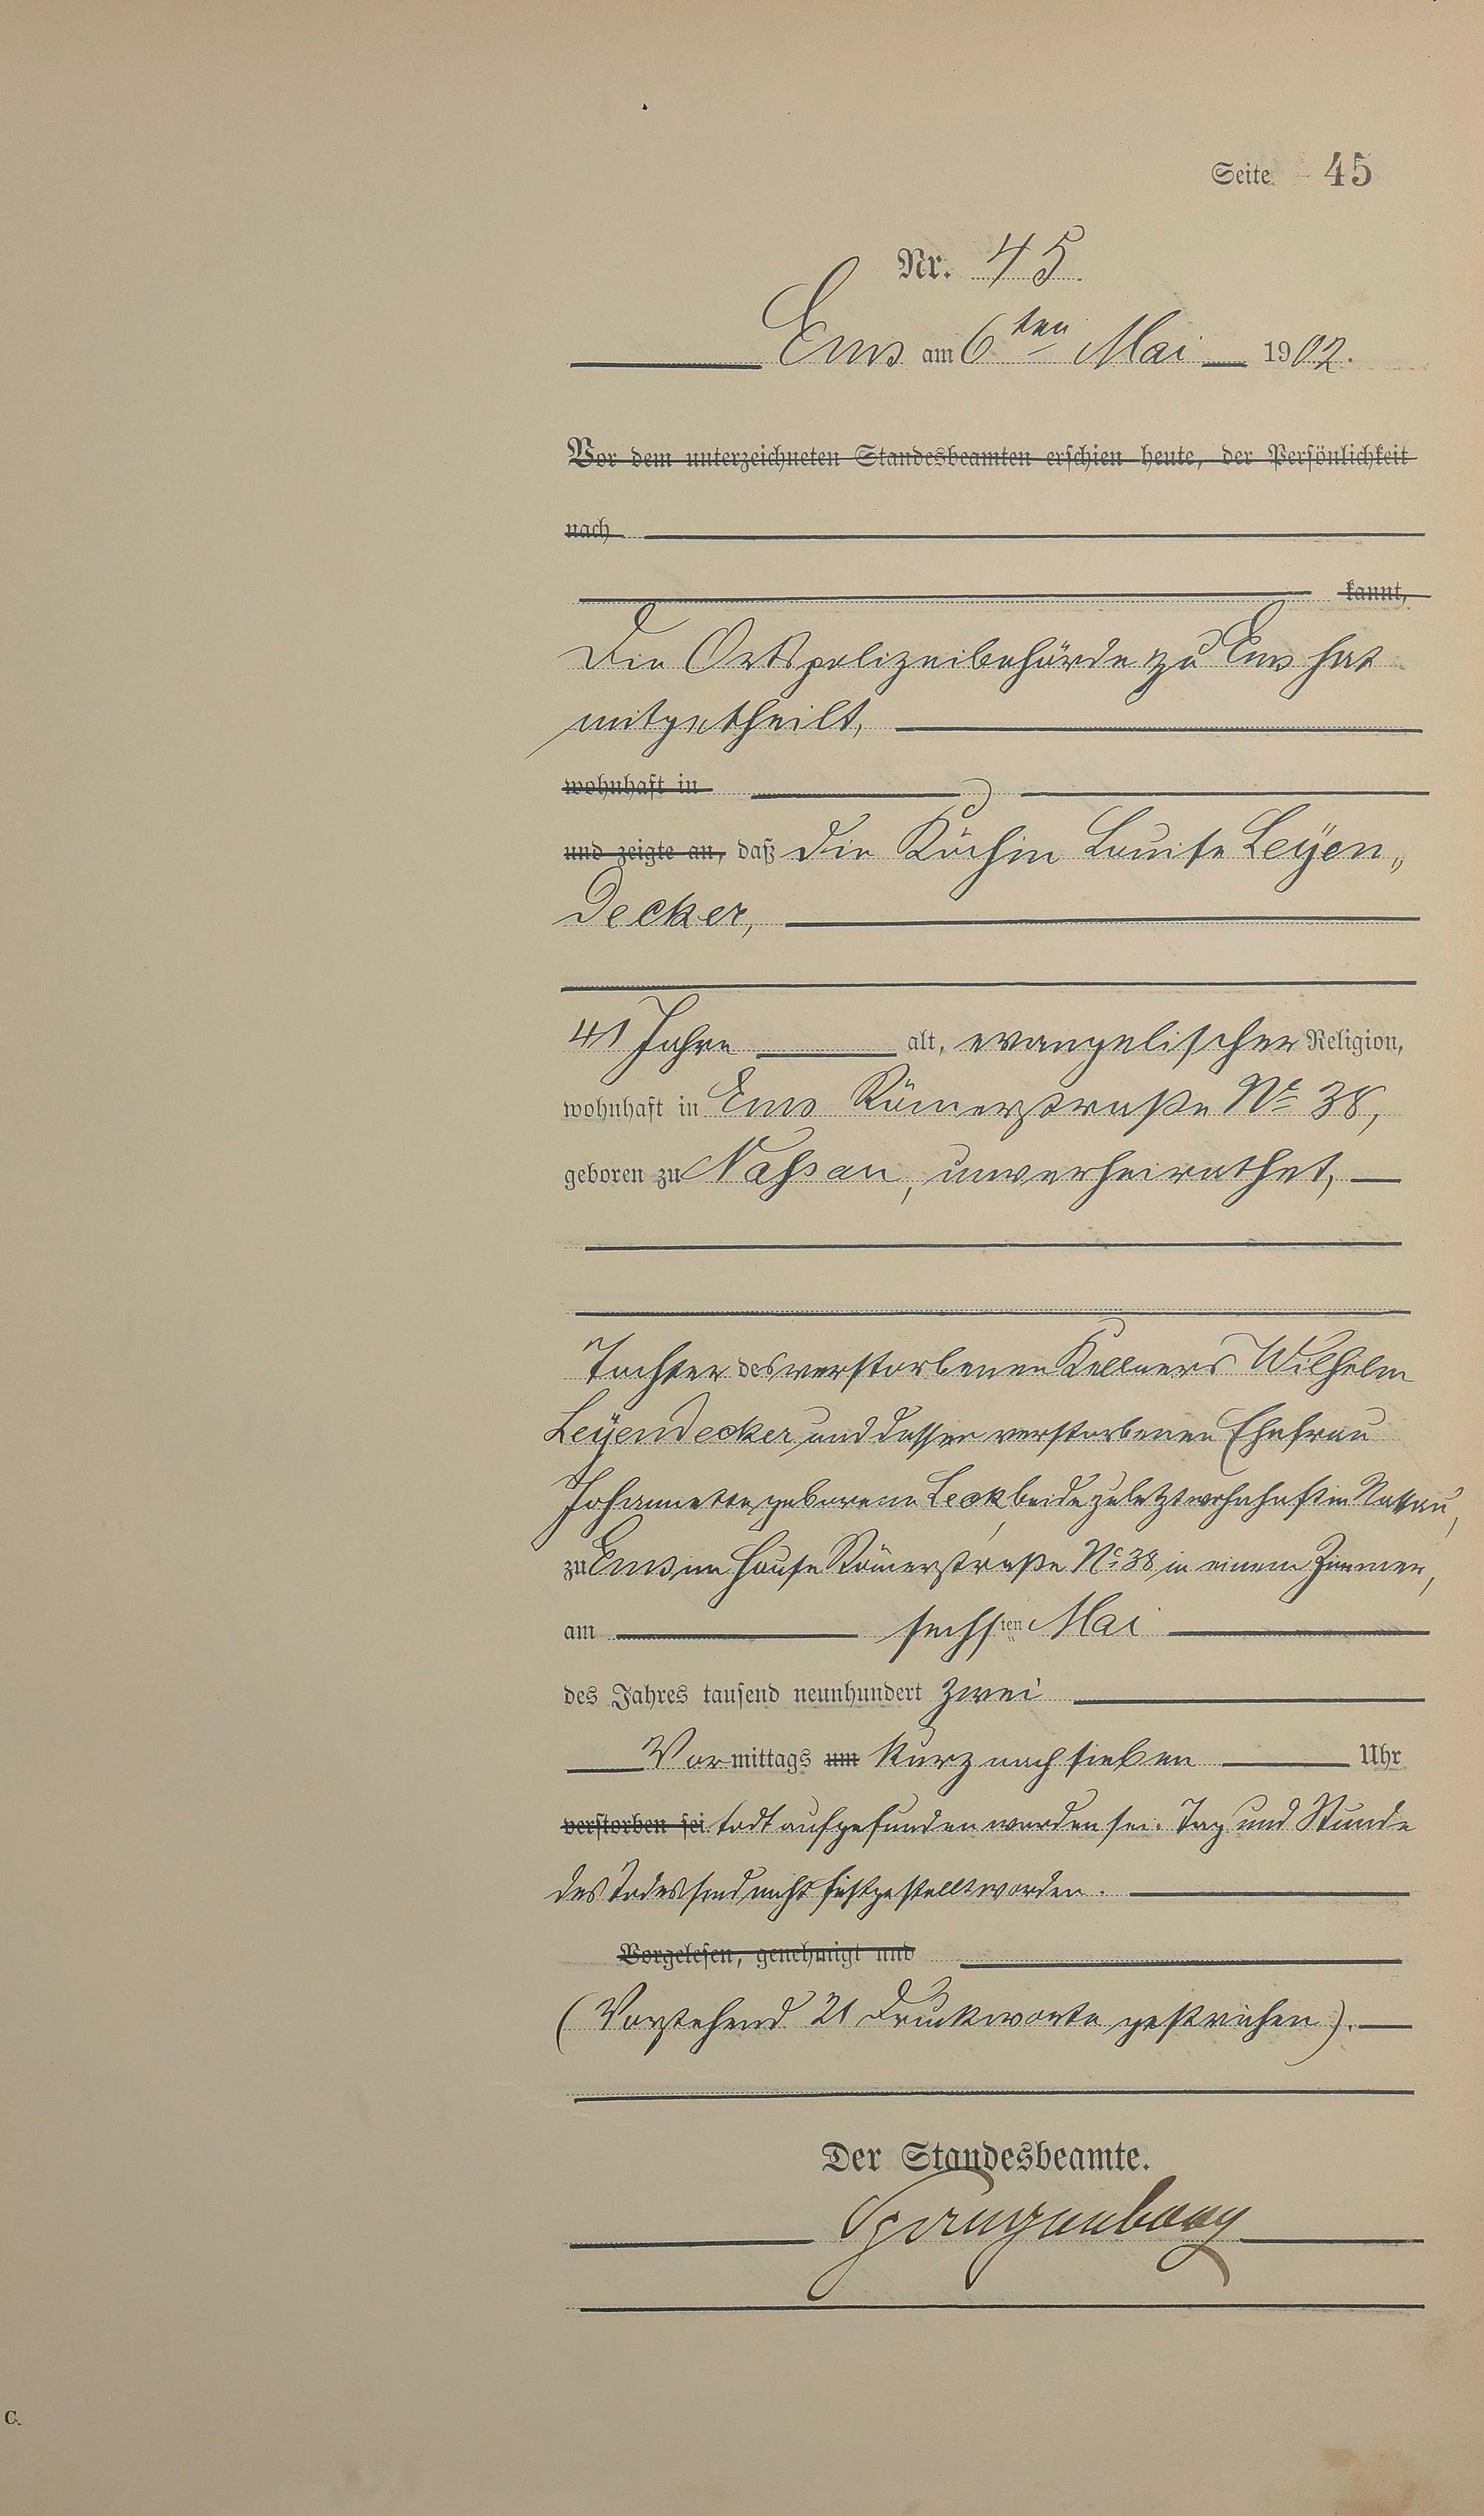 Seite 45
Nr. 45
Ems am 6ten Mai 1902.
Vor dem unterzeichneten Standesbeamten erschien heute, der Persönlichkeit
nach
kannt,
Die Ortspolizeibehörde zu Ems hat
mitgetheilt,
wohnhaft in
und zeigte an, daß die Köchin Louise Leÿen„
decker,
41 Jahre alt, evangelischer Religion,
wohnhaft in Ems Römerstraße No 38,
geboren zu Nassau, unverheirathet,
Tochter des verstorbenen Kellners Wilhelm
Leÿendecker und dessen verstorbenen Ehefrau
Johannette geborene Leck, beide zuletzt wohnhaft in Nassau,
zu Ems im Hause Römerstraße No 38 in einem Zimmer,
am sechsten Mai
des Jahres tausend neunhundert zwei
Vormittags um kurz nach sieben Uhr
verstorben sei todt aufgefunden worden sei. Tag und Stunde
des Todes sind nicht festgestellt worden.
Vorgelesen, genehmigt und
(Vorstehend 21 Druckworte gestrichen).
Der Standesbeamte.
C.